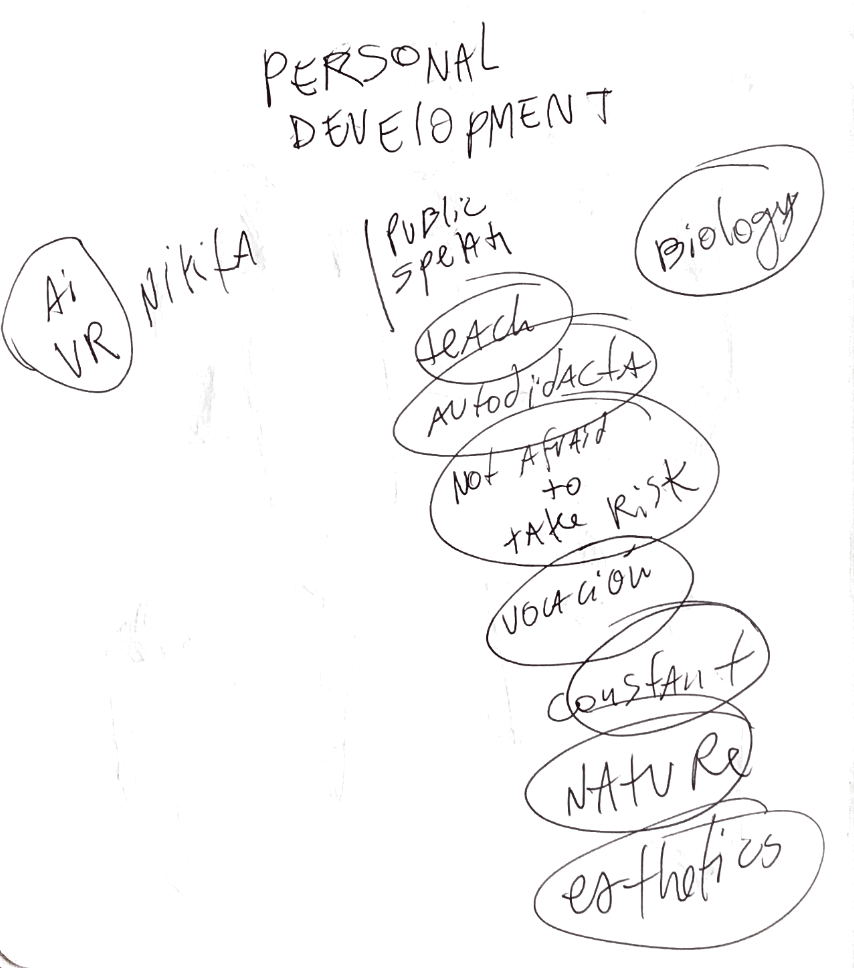 PERSONAL
DEVElOPMENT
Ai
VR
NikitA
PUBlic
speak
teach
AUtodidActA
Not Afraid
to
take Risk
Biology
VOCACIÓN
constant
NATURe
esthetics